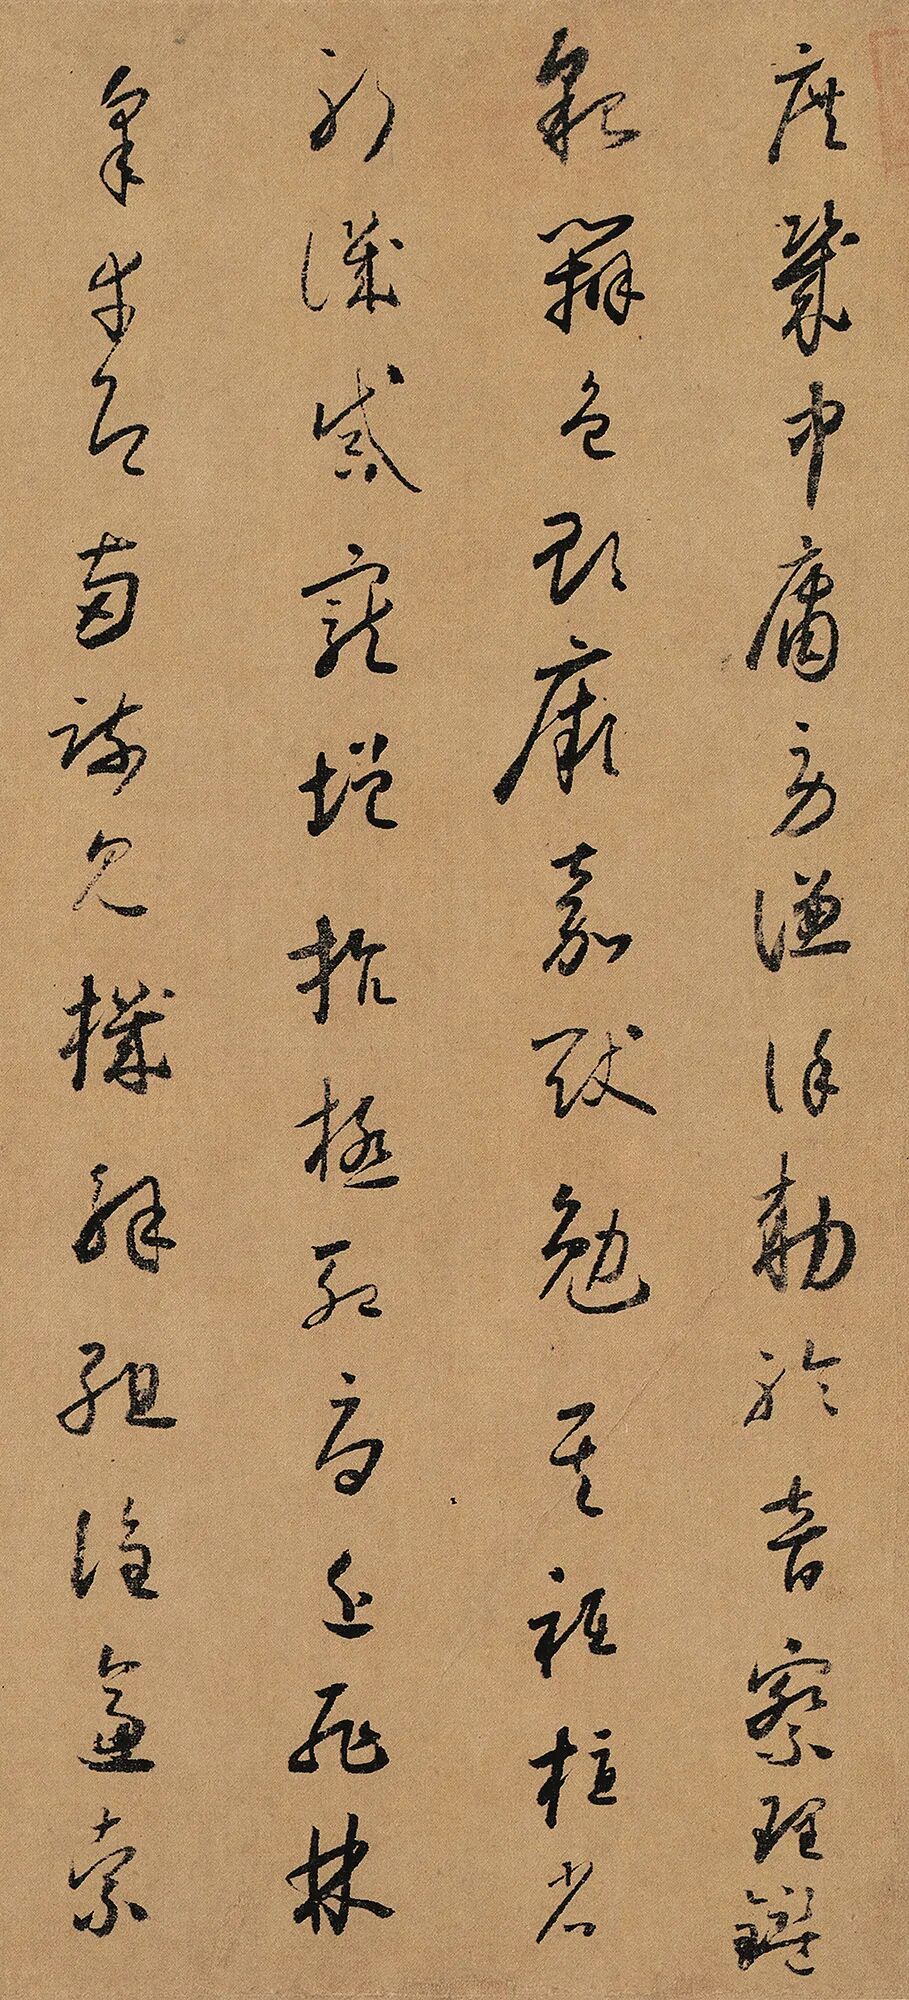 庶幾中庸勞謙謹勅聆音察理鑑
貌辨色貽厥嘉猷勉其祗植省
躬譏誡寵增抗極殆辱近恥林
皋幸即兩疏見機解組誰逼索